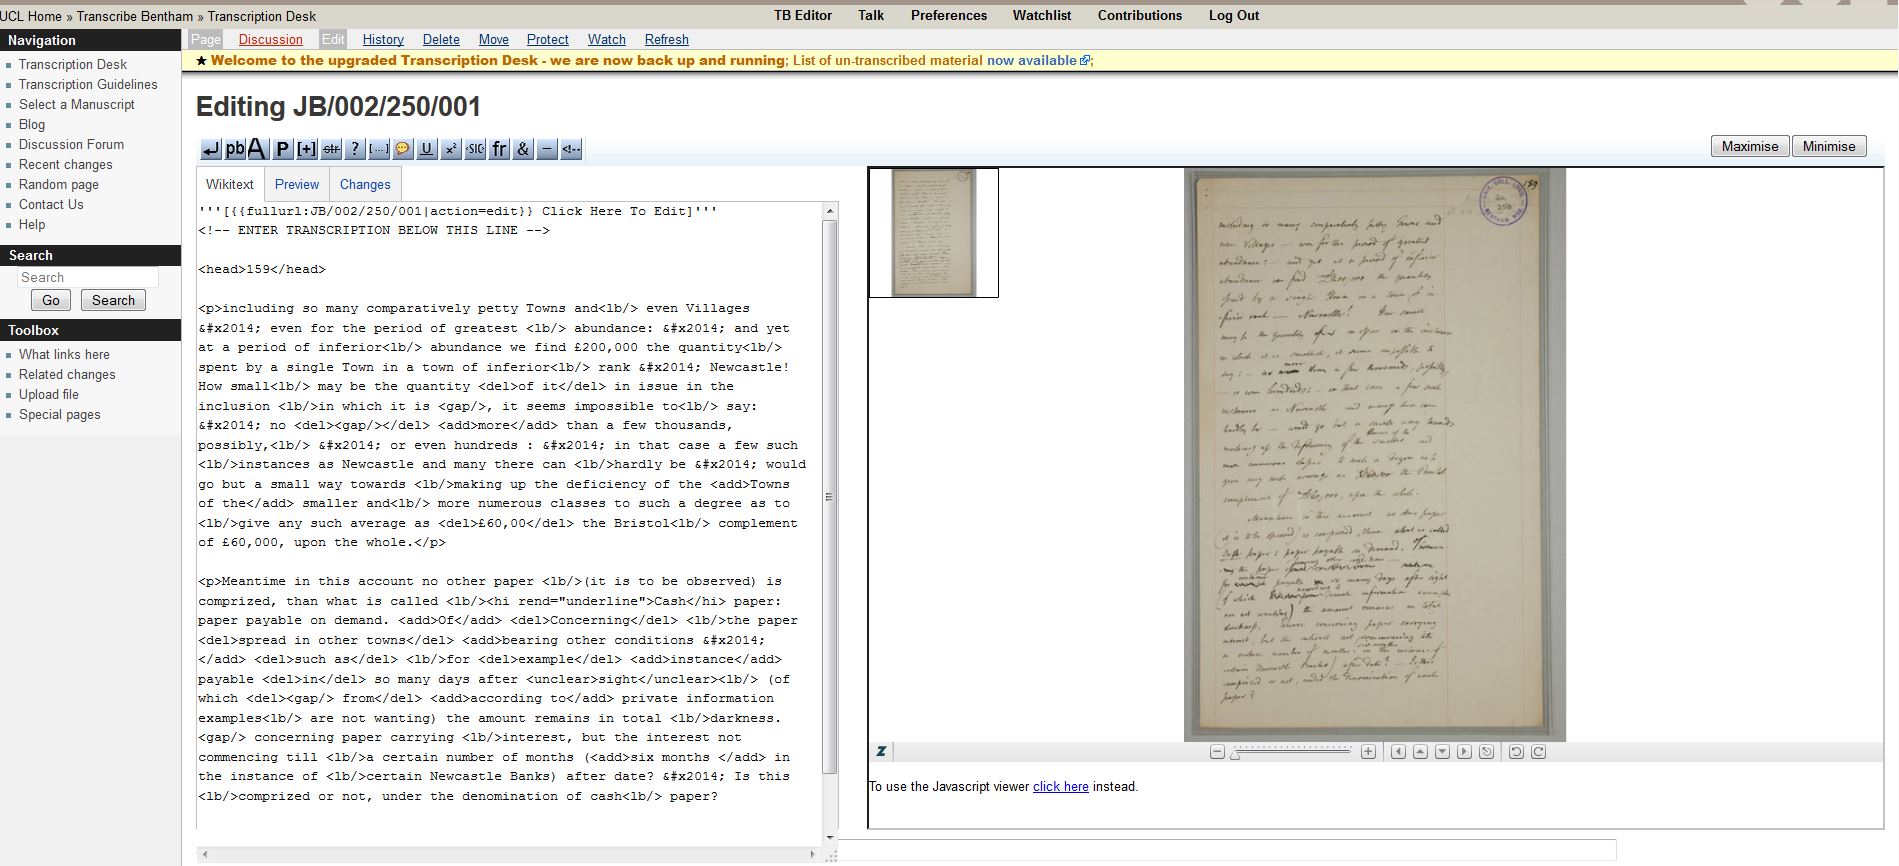 UCL Home » Transcribe Bentham » Transcription Desk
TB Editor Talk Preferences Watchlist Contributions Log Out
Navigation
Transcription Desk
Transcription Guidelines
Select a Manuscript
Blog
Discussion Forum
Recent changes
Random page
Contact Us
Help
Search
Search
Go Search
Toolbox
What links here
Related changes
Upload file
Special pages
Page Discussion Edit History Delete Move Protect Watch Refresh
★ Welcome to the upgraded Transcription Desk - we are now back up and running; List of un-transcribed material now available;
Editing JB/002/250/001
pb A P [+] str ? [...] U x² SIC fr & – <!--
Maximise Minimise
Wikitext Preview Changes
'''[{{fullurl:JB/002/250/001|action=edit}} Click Here To Edit]'''
<!-- ENTER TRANSCRIPTION BELOW THIS LINE -->
<head>159</head>
<p>including so many comparatively petty Towns and<lb/> even Villages
&#x2014; even for the period of greatest <lb/> abundance: &#x2014; and yet
at a period of inferior<lb/> abundance we find £200,000 the quantity<lb/>
spent by a single Town in a town of inferior<lb/> rank &#x2014; Newcastle!
How small<lb/> may be the quantity <del>of it</del> in issue in the
inclusion <lb/>in which it is <gap/>, it seems impossible to<lb/> say:
&#x2014; no <del><gap/></del> <add>more</add> than a few thousands,
possibly,<lb/> &#x2014; or even hundreds : &#x2014; in that case a few such
<lb/>instances as Newcastle and many there can <lb/>hardly be &#x2014; would
go but a small way towards <lb/>making up the deficiency of the <add>Towns
of the</add> smaller and<lb/> more numerous classes to such a degree as to
<lb/>give any such average as <del>£60,00</del> the Bristol<lb/> complement
of £60,000, upon the whole.</p>
<p>Meantime in this account no other paper <lb/>(it is to be observed) is
comprized, than what is called <lb/><hi rend="underline">Cash</hi> paper:
paper payable on demand. <add>Of</add> <del>Concerning</del> <lb/>the paper
<del>spread in other towns</del> <add>bearing other conditions &#x2014;
</add> <del>such as</del> <lb/>for <del>example</del> <add>instance</add>
payable <del>in</del> so many days after <unclear>sight</unclear><lb/> (of
which <del><gap/> from</del> <add>according to</add> private information
examples<lb/> are not wanting) the amount remains in total <lb/>darkness.
<gap/> concerning paper carrying <lb/>interest, but the interest not
commencing till <lb/>a certain number of months (<add>six months </add> in
the instance of <lb/>certain Newcastle Banks) after date? &#x2014; Is this
<lb/>comprized or not, under the denomination of cash<lb/> paper?
159
including so many comparatively petty Towns and
even Villages — even for the period of greatest
abundance: — and yet at a period of inferior
To use the Javascript viewer click here instead.